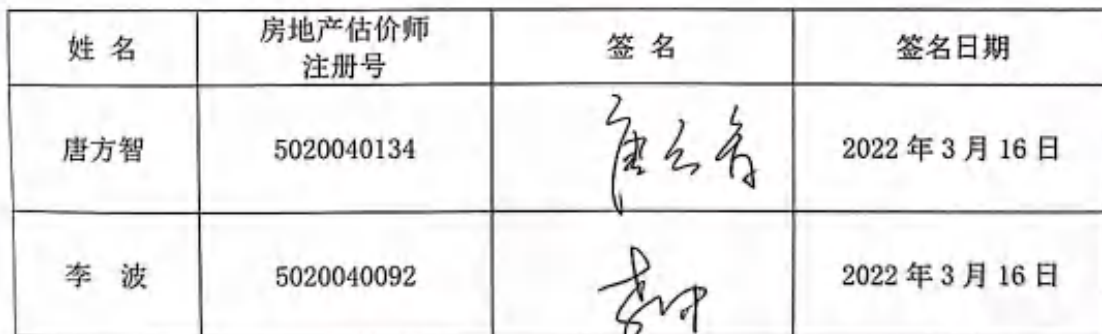 姓 名
房地产估价师
注册号
签 名
签名日期
唐方智
5020040134
2022 年 3 月 16 日
李 波
5020040092
2022 年 3 月 16 日